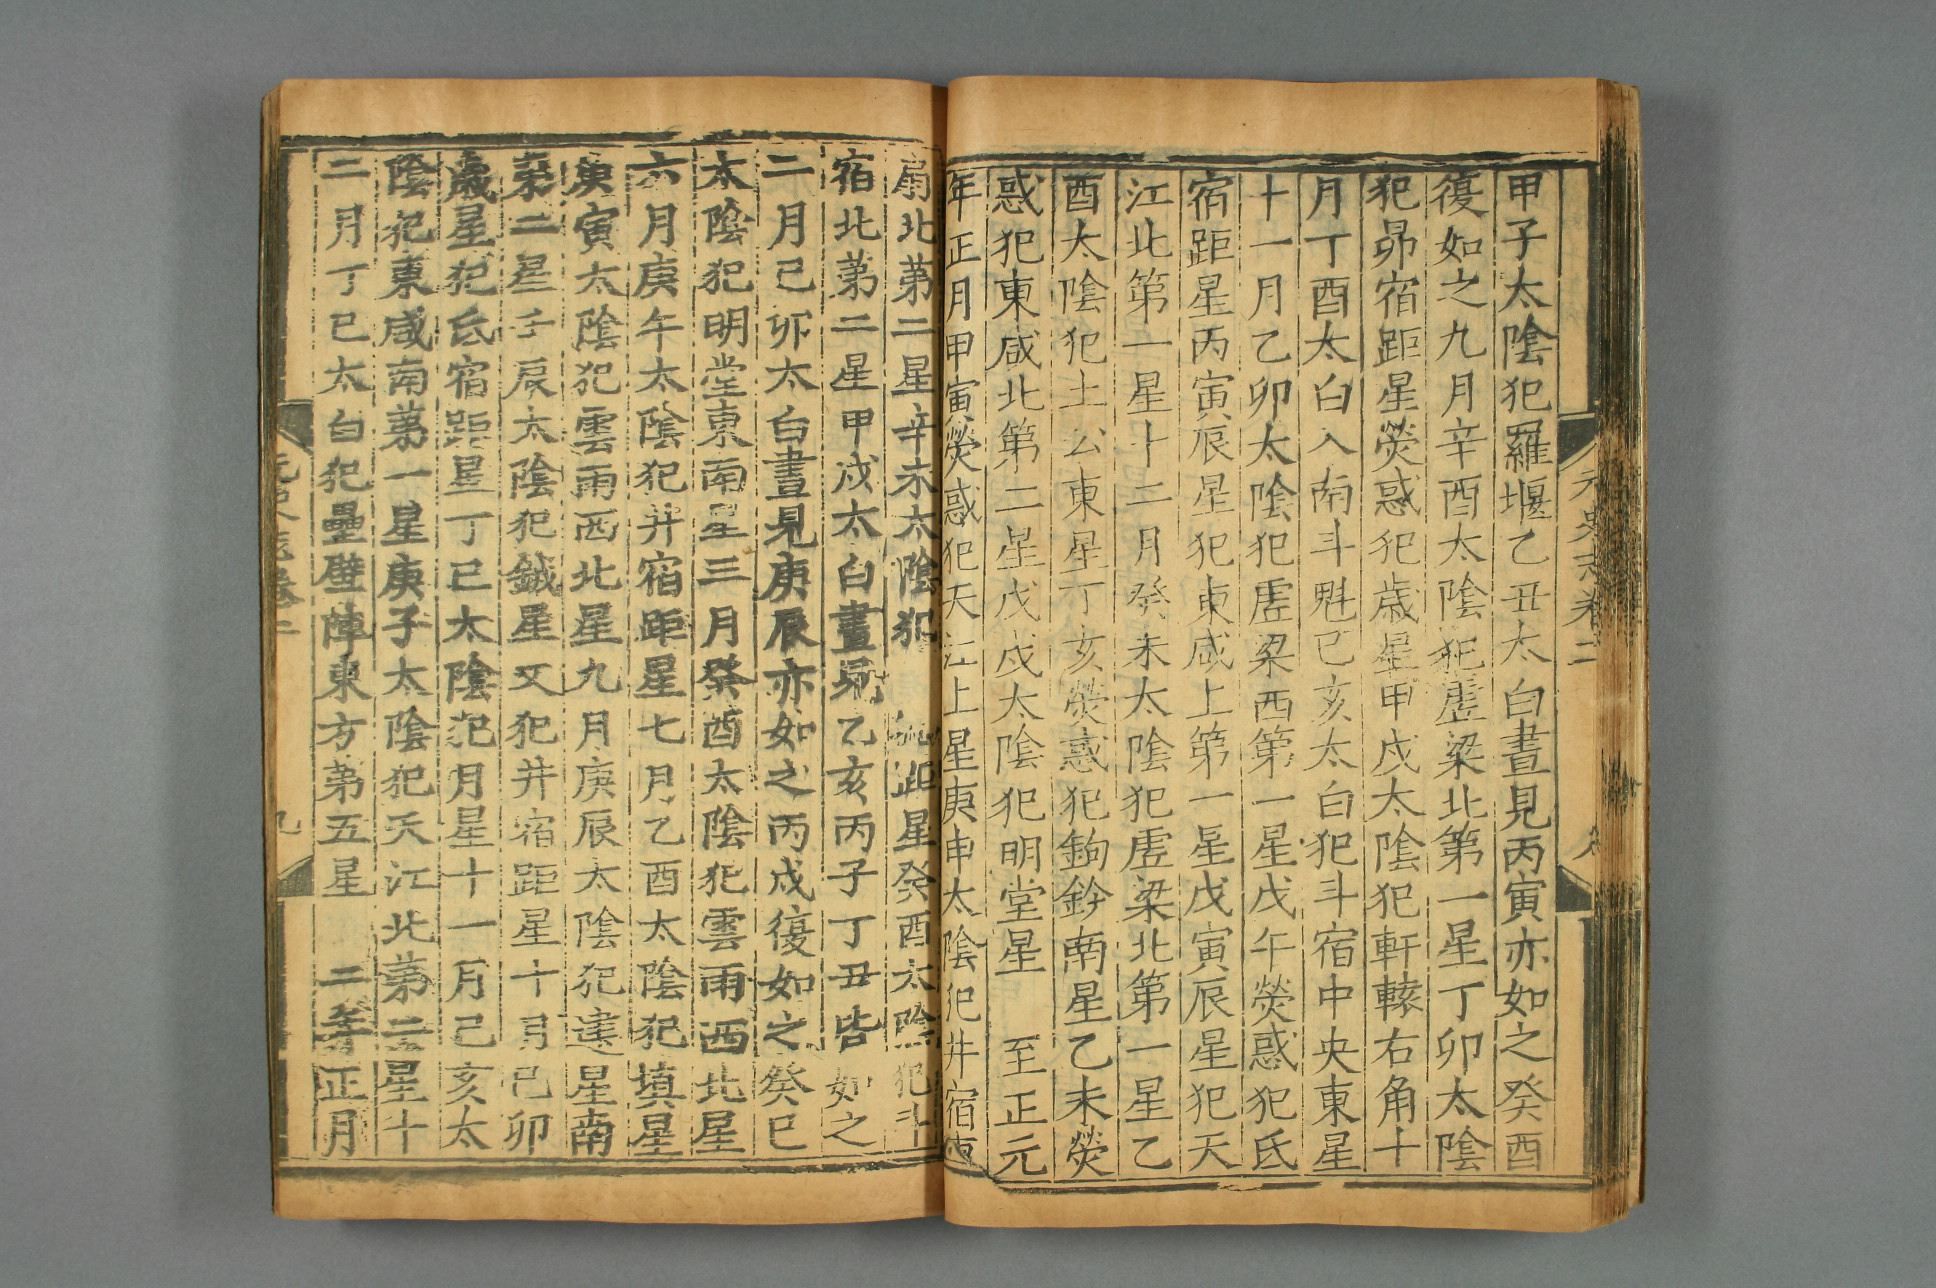 甲子太陰犯羅堰乙丑太白晝見丙寅亦如之癸酉
復如之九月辛酉太陰犯虛梁北第一星丁卯太陰
犯昴宿距星熒惑犯歲星甲戌太陰犯軒轅右角十
月丁酉太白入南斗魁己亥太白犯斗宿中央東星
十一月乙卯太陰犯虛梁西第一星戊午熒惑犯氐
宿距星丙寅辰星犯東咸上第一星戊寅辰星犯天
江北第一星十二月癸未太陰犯虛梁北第一星乙
酉太陰犯土公東星丁亥熒惑犯鉤鈐南星乙未熒
惑犯東咸北第二星戊戌太陰犯明堂星 至正元
年正月甲寅熒惑犯天江上星庚申太陰犯井宿東
扇北第二星辛未太陰犯 距星癸酉太陰犯斗
宿北第二星甲戌太白晝見乙亥丙子丁丑皆如之
二月己卯太白晝見庚辰亦如之丙戌復如之癸巳
太陰犯明堂東南星三月癸酉太陰犯雲雨西北星
六月庚午太陰犯井宿距星七月乙酉太陰犯填星
庚寅太陰犯雲雨西北星九月庚辰太陰犯建星南
第二星壬辰太陰犯鉞星又犯井宿距星十月己卯
歲星犯氐宿距星丁巳太陰犯月星十一月己亥太
陰犯東咸南第一星庚子太陰犯天江北第二星十
二月丁巳太白犯壘壁陣東方第五星 二年正月
元史志卷二
九